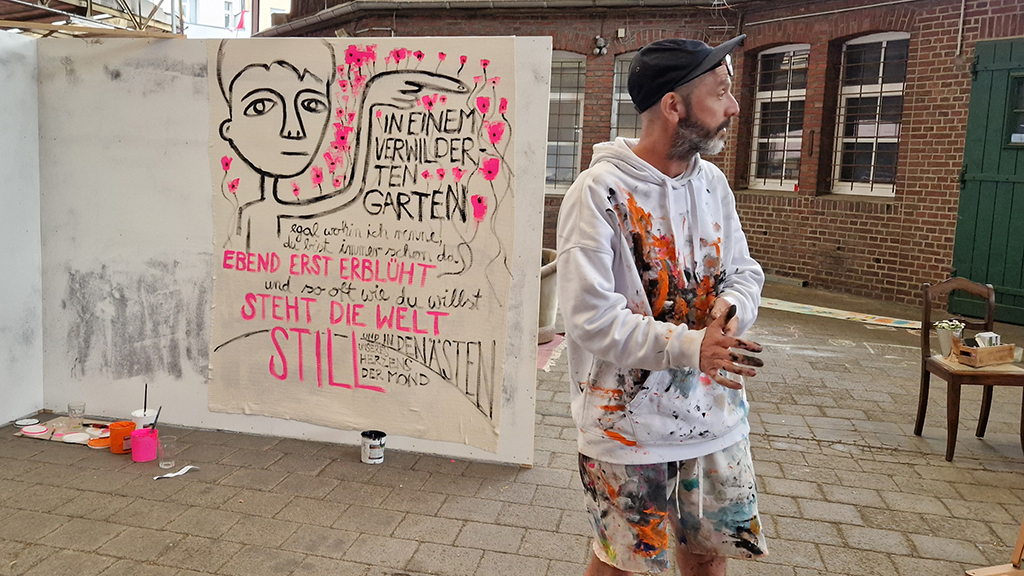 IN EINEM
VERWILDER-
TEN
GARTEN
egal wohin ich renne,
du bist immer schon da
EBEND ERST ERBLÜHT
und so oft wie du willst
STEHT DIE WELT
STILL
UND IN DEN ÄSTEN
HERZENS
DER MOND